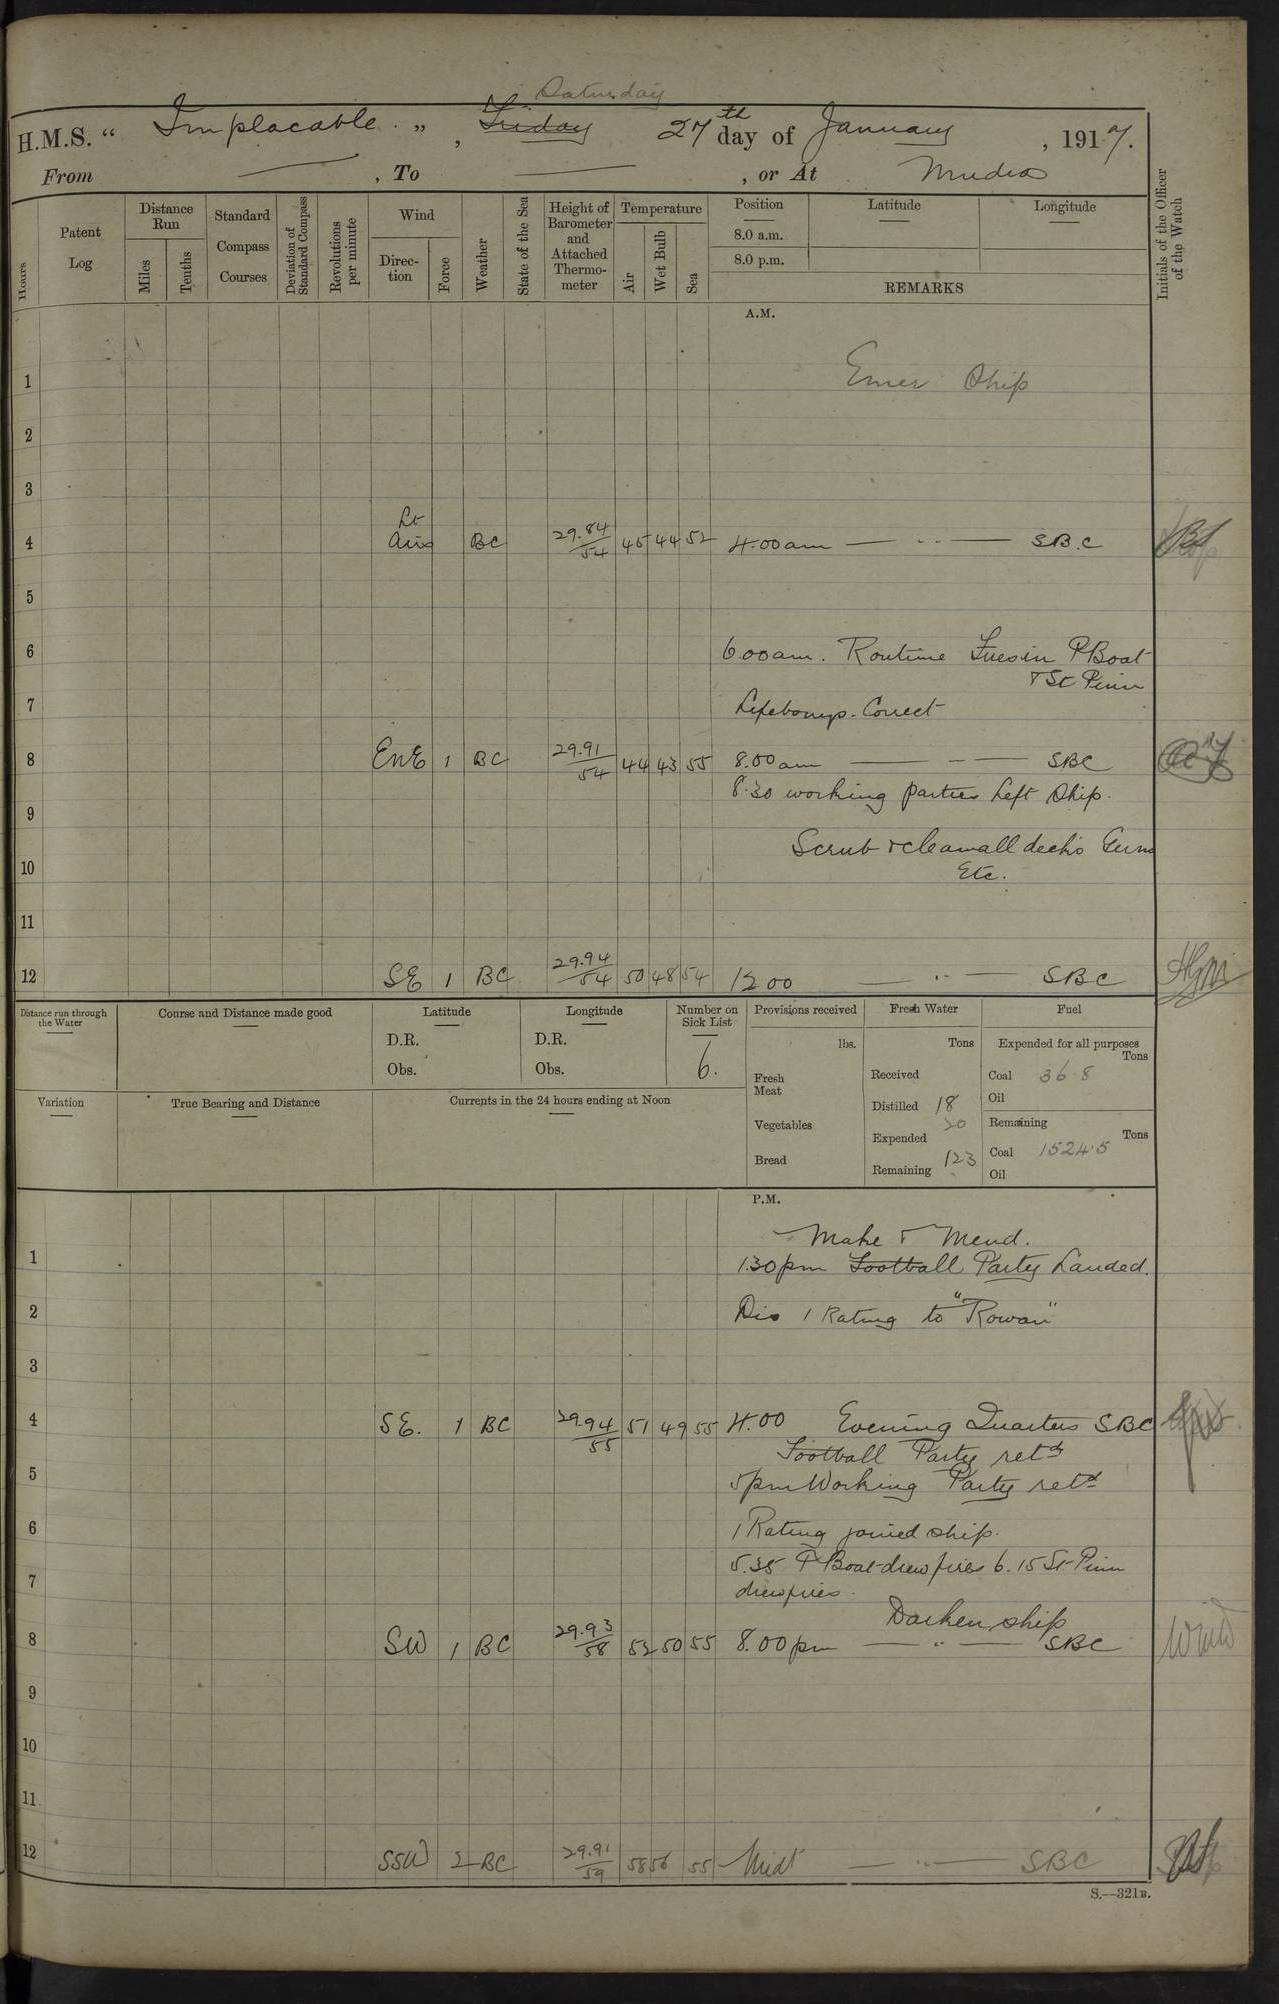 Saturday
H.M.S. " Implacable. ", Friday 27th day of January, 1917.
From — , To — , or At Mudros
Hours
Patent Log
Distance Run
Miles
Tenths
Standard Compass Courses
Deviation of Standard Compass
Revolutions per minute
Wind
Direction
Force
Weather
State of the Sea
Height of Barometer and Attached Thermometer
Temperature
Air
Wet Bulb
Sea
Position
8.0 a.m.
8.0 p.m.
Latitude
Longitude
REMARKS
Initials of the Officer of the Watch
A.M.
1 Emer Ship
2
3
4 Lt Airs BC 29.84/54 45 44 52 4.00am — " — SBC
5
6 6.00am. Routine Fires in P Boat
& St Pinn
7 Lifebuoys. Correct
8 ENE 1 BC 29.91/54 44 43 55 8.00am — " — SBC
8.30 working parties Left Ship.
9
Scrub & clean all decks Guns
10 Etc.
11
12 SE 1 BC 29.94/54 50 48 54 12 00 — " — SBC
Distance run through the Water
Course and Distance made good
Latitude
D.R.
Obs.
Longitude
D.R.
Obs.
Number on Sick List
6.
Provisions received
lbs.
Fresh Meat
Vegetables
Bread
Fresh Water
Tons
Received
Distilled 18
Expended 20
Remaining 123
Fuel
Expended for all purposes
Tons
Coal 36.8
Oil
Remaining
Tons
Coal 1524.5
Oil
Variation
True Bearing and Distance
Currents in the 24 hours ending at Noon
P.M.
Make & Mend.
1 1.30pm Football Party Landed.
2 Dis 1 Rating to "Rowan"
3
4 SE. 1 BC 29.94/55 51 49 55 4.00 Evening Quarters SBC
Football Party retd
5 5pm Working Party retd
6 1 Rating joined ship.
5.35 P Boat drew fires 6.15 St Pinn
7 drew fires.
Darken ship
8 SW 1 BC 29.93/58 52 50 55 8.00pm — " — SBC
9
10
11
12 SSW 2 BC 29.91/59 58 56 55 Midt — " — SBC
S.—321B.